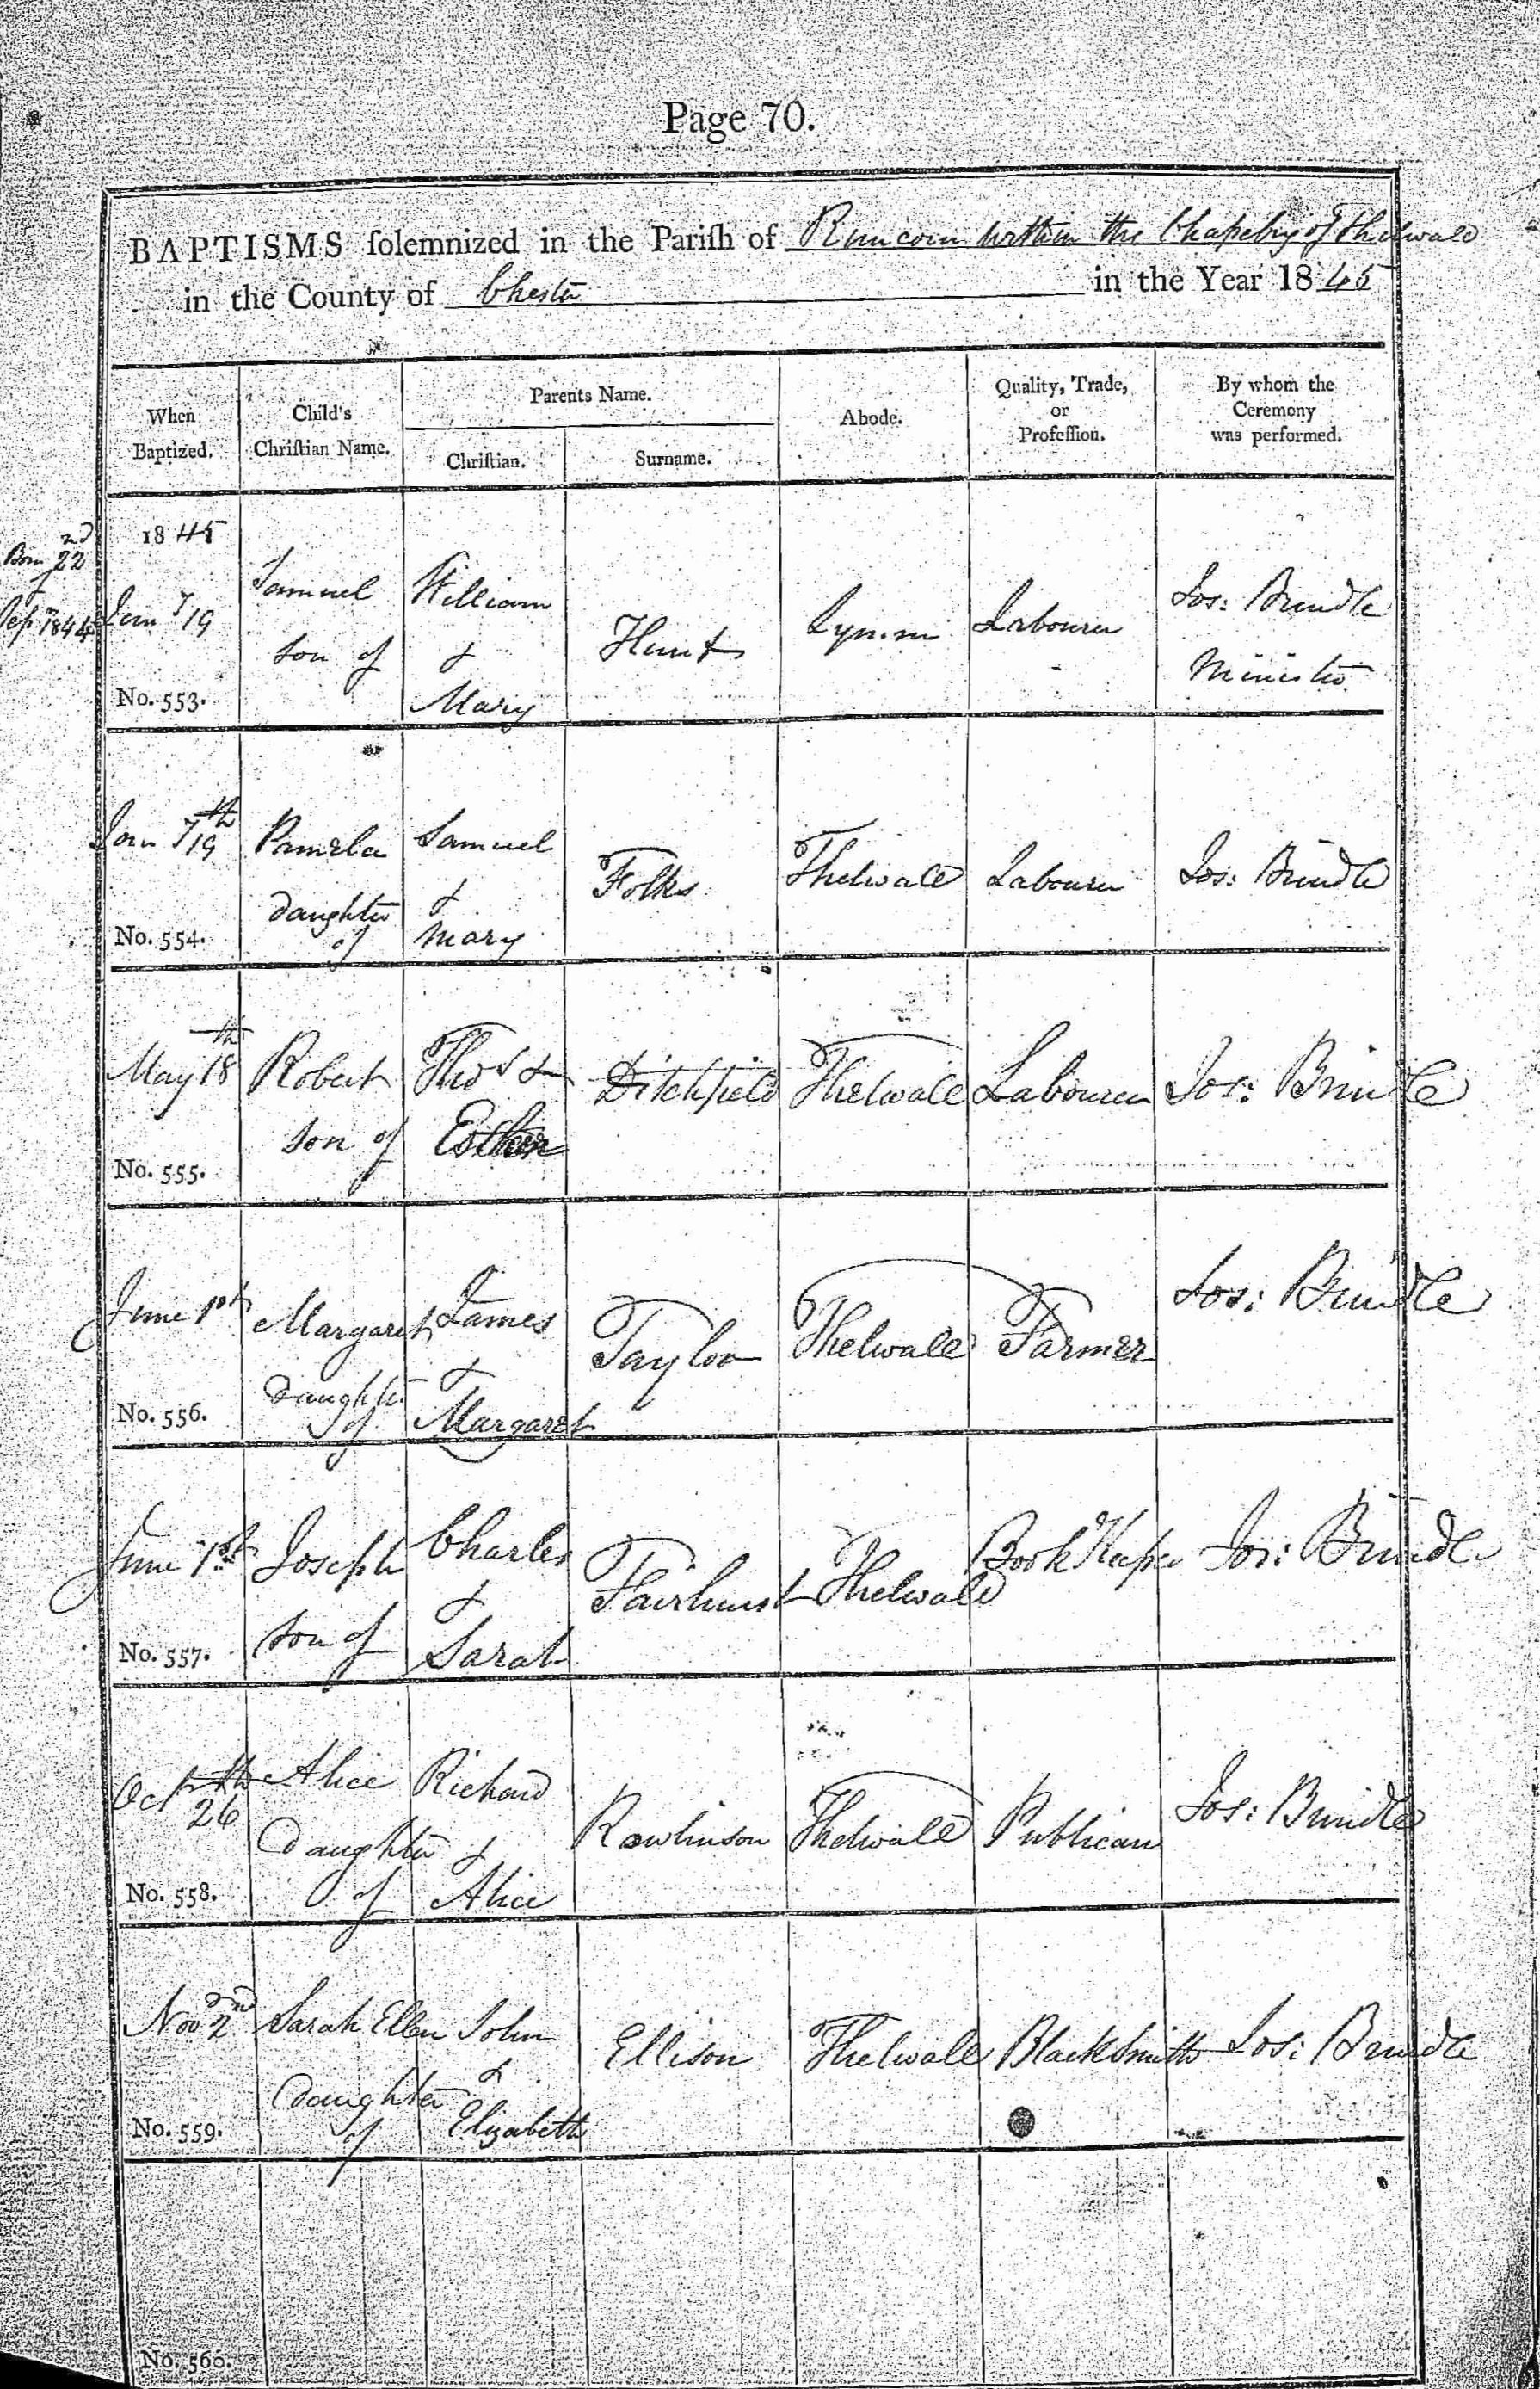 Page 70.
BAPTISMS solemnized in the Parish of Runcorn within the Chapelry of Thelwall
in the County of Chester in the Year 1845
When Baptized.
Child's Christian Name.
Parents Name.
Christian.
Surname.
Abode.
Quality, Trade, or Profession.
By whom the Ceremony was performed.
Born 22nd
Sep 1844
1845
Jan 19
No. 553.
Samuel
son of
William
&
Mary
Hunt
Lymm
Labourer
Jos: Brindle
Minister
Jan 19th
No. 554.
Pamela
daughter
of
Samuel
&
Mary
Folks
Thelwall
Labourer
Jos: Brindle
May 18th
No. 555.
Robert
son of
Thos &
Esther
Ditchfield
Thelwall
Labourer
Jos: Brindle
June 1st
No. 556.
Margaret
Daughter
of
James
&
Margaret
Taylor
Thelwall
Farmer
Jos: Brindle
June 1st
No. 557.
Joseph
son of
Charles
&
Sarah
Fairhurst
Thelwall
Book Keeper
Jos: Brindle
Oct 26th
No. 558.
Alice
Daughter
of
Richard
&
Alice
Rowlinson
Thelwall
Publican
Jos: Brindle
Nov 2nd
No. 559.
Sarah Ellen
Daughter
of
John
&
Elizabeth
Ellison
Thelwall
Blacksmith
Jos: Brindle
No. 560.